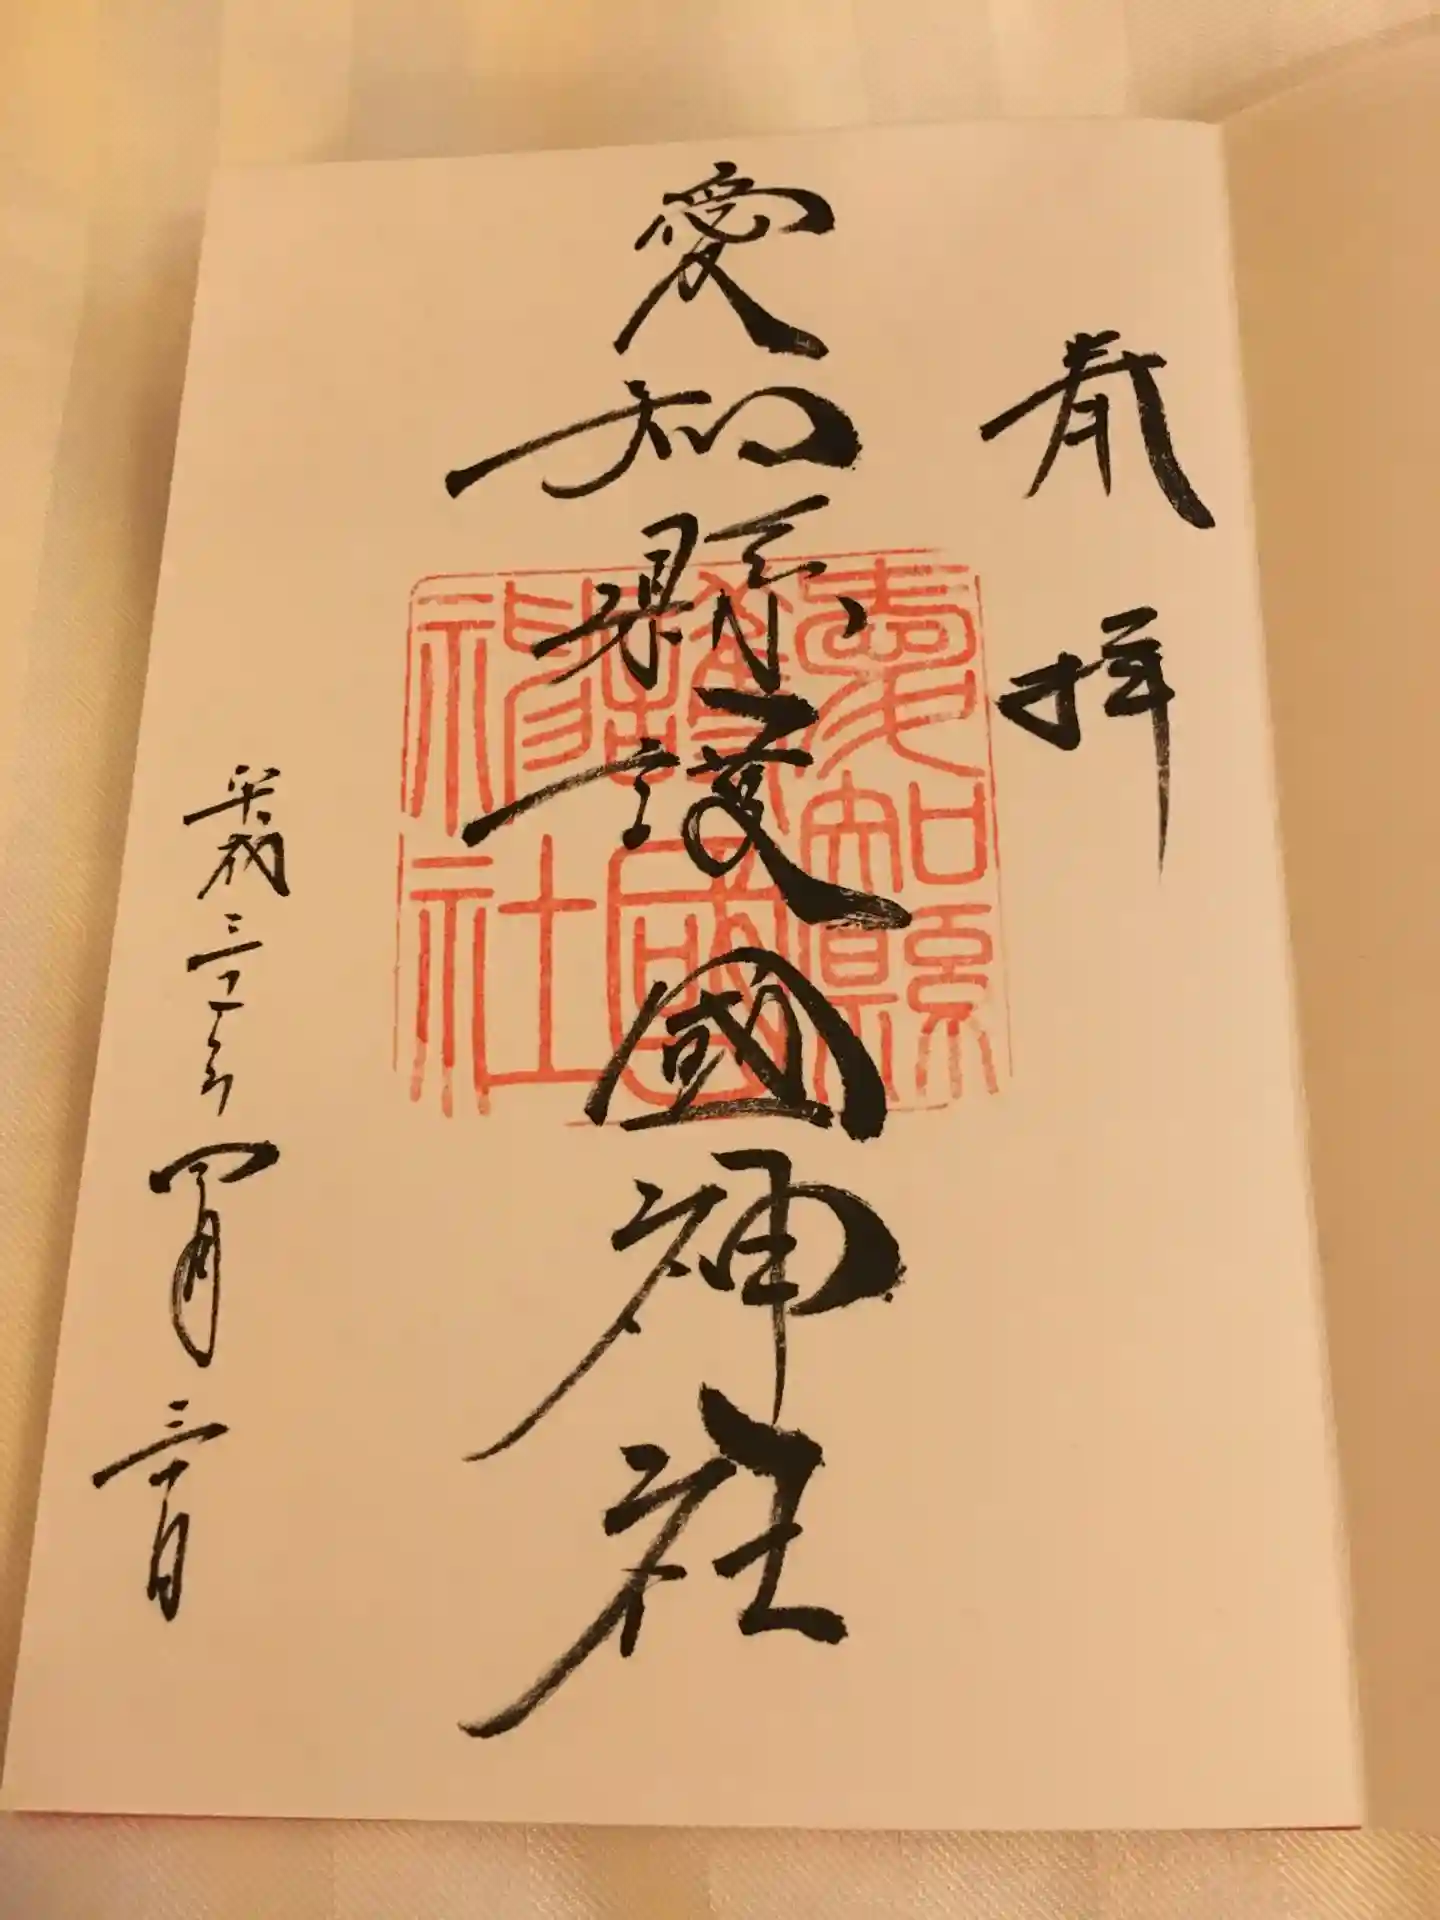 奉拝
愛知縣護國神社
愛知縣護國神社
平成三十一年四月三十日